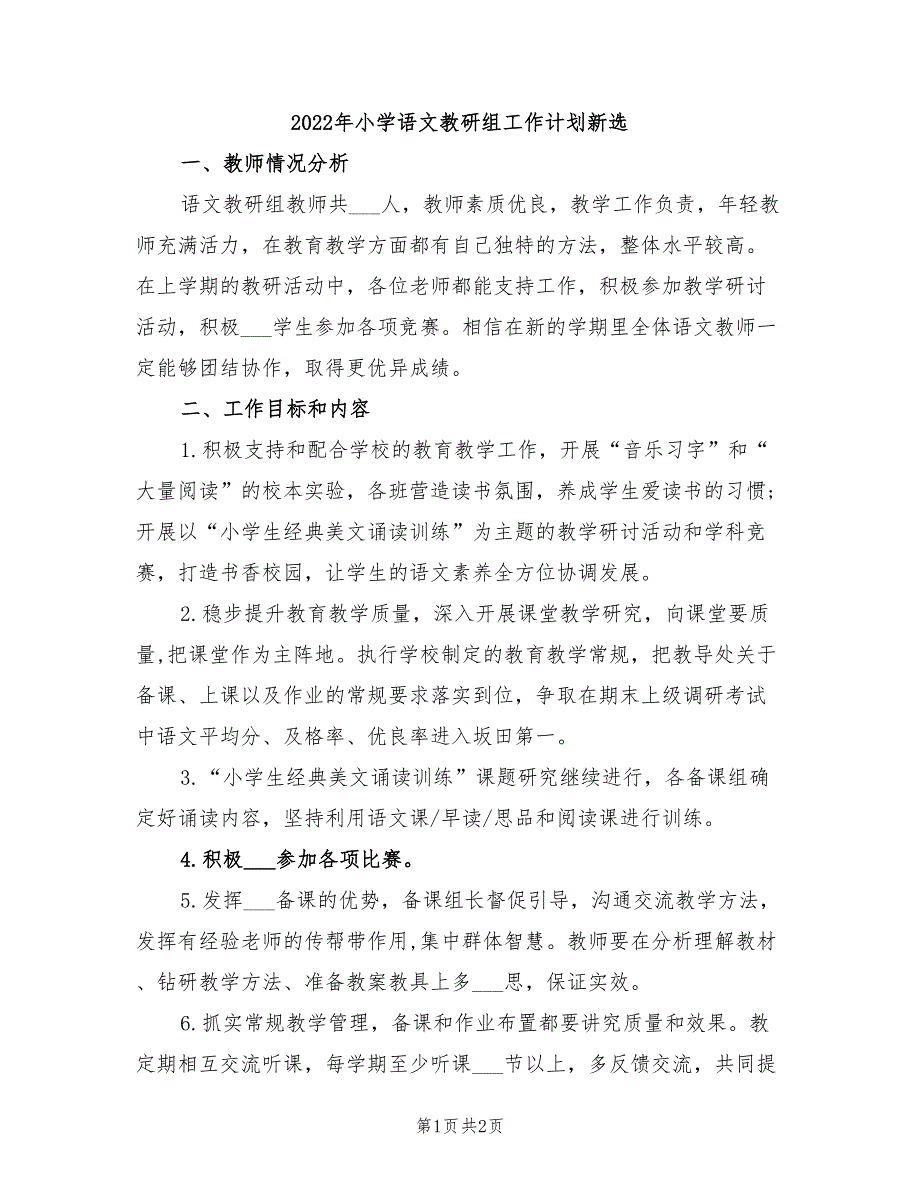 2022年小学语文教研组工作计划新选
一、教师情况分析
语文教研组教师共___人，教师素质优良，教学工作负责，年轻教
师充满活力，在教育教学方面都有自己独特的方法，整体水平较高。
在上学期的教研活动中，各位老师都能支持工作，积极参加教学研讨
活动，积极___学生参加各项竞赛。相信在新的学期里全体语文教师一
定能够团结协作，取得更优异成绩。
二、工作目标和内容
1.积极支持和配合学校的教育教学工作，开展“音乐习字”和“
大量阅读”的校本实验，各班营造读书氛围，养成学生爱读书的习惯;
开展以“小学生经典美文诵读训练”为主题的教学研讨活动和学科竞
赛，打造书香校园，让学生的语文素养全方位协调发展。
2.稳步提升教育教学质量，深入开展课堂教学研究，向课堂要质
量,把课堂作为主阵地。执行学校制定的教育教学常规，把教导处关于
备课、上课以及作业的常规要求落实到位，争取在期末上级调研考试
中语文平均分、及格率、优良率进入坂田第一。
3.“小学生经典美文诵读训练”课题研究继续进行，各备课组确
定好诵读内容，坚持利用语文课/早读/思品和阅读课进行训练。
4.积极___参加各项比赛。
5.发挥___备课的优势，备课组长督促引导，沟通交流教学方法，
发挥有经验老师的传帮带作用,集中群体智慧。教师要在分析理解教材
、钻研教学方法、准备教案教具上多___思，保证实效。
6.抓实常规教学管理，备课和作业布置都要讲究质量和效果。教
定期相互交流听课，每学期至少听课___节以上，多反馈交流，共同提
第1页共2页